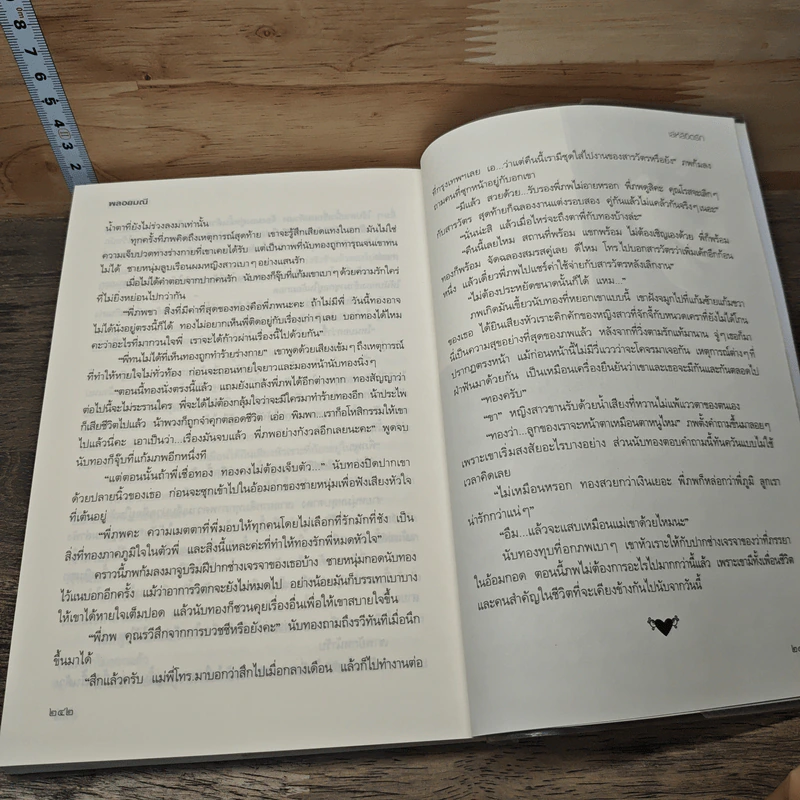 8
7
6
5
4
3
2
พลอยมณี
น้ำตาที่ยังไม่ร่วงลงมาเท่านั้น
ทุกครั้งที่ภพคิดถึงเหตุการณ์สุดท้าย เขาจะรู้สึกเสียดแทงในอก มันไม่ใช่
ความเจ็บปวดทางร่างกายที่เขาเคยได้รับ แต่เป็นภาพที่นับทองถูกทารุณจนเขาทน
ไม่ได้ ชายหนุ่มลูบเรือนผมหญิงสาวเบาๆ อย่างแสนรัก
เมื่อไม่ได้คำตอบจากปากคนรัก นับทองก็จุ๊บที่แก้มเขาเบาๆ ด้วยความรักใคร่
ที่ไม่ยิ่งหย่อนไปกว่ากัน
“พี่ภพขา สิ่งที่มีค่าที่สุดของทองคือพี่ภพนะคะ ถ้าไม่มีพี่ วันนี้ทองอาจ
ไม่ได้นั่งอยู่ตรงนี้ก็ได้ ทองไม่อยากเห็นพี่ติดอยู่กับเรื่องเก่าๆ เลย บอกทองได้ไหม
คะว่าอะไรที่มากวนใจพี่ เราจะได้ก้าวผ่านเรื่องนี้ไปด้วยกัน”
“พี่ทนไม่ได้ที่เห็นทองถูกทำร้ายร่างกาย” เขาพูดด้วยเสียงเข้มๆ ถึงเหตุการณ์
ที่ทำให้หายใจไม่ทั่วท้อง ก่อนจะถอนหายใจยาวและมองหน้านับทองนิ่งๆ
“ตอนนี้ทองนั่งตรงนี้แล้ว แถมยังแกล้งพี่ภพได้อีกต่างหาก ทองสัญญาว่า
ต่อไปนี้จะไม่ระรานใคร พี่จะได้ไม่ต้องกลุ้มใจว่าจะมีใครมาทำร้ายทองอีก น้าประไพ
ก็เสียชีวิตไปแล้ว น้าพวงก็ถูกจำคุกตลอดชีวิต เอ่อ พิมพา...เราก็อโหสิกรรมให้เขา
ไปแล้วนี่คะ เอาเป็นว่า...เรื่องมันจบแล้ว พี่ภพอย่ากังวลอีกเลยนะคะ” พูดจบ
นับทองก็จุ๊บที่แก้มภพอีกหนึ่งที
“แต่ตอนนั้นถ้าพี่เชื่อทอง ทองคงไม่ต้องเจ็บตัว...” นับทองปิดปากเขา
ด้วยปลายนิ้วของเธอ ก่อนจะซุกเข้าไปในอ้อมอกของชายหนุ่มเพื่อฟังเสียงหัวใจ
ที่เต้นอยู่
“พี่ภพคะ ความเมตตาที่พี่มอบให้ทุกคนโดยไม่เลือกที่รักมักที่ชัง เป็น
สิ่งที่ทองภาคภูมิใจในตัวพี่ และสิ่งนี้แหละค่ะที่ทำให้ทองรักพี่หมดหัวใจ”
คราวนี้ภพก้มลงมาจูบริมฝีปากช่างเจรจาของเธอบ้าง ชายหนุ่มกอดนับทอง
ไว้แนบอกอีกครั้ง แม้ว่าอาการวิตกจะยังไม่หมดไป อย่างน้อยมันก็บรรเทาเบาบาง
ให้เขาได้หายใจเต็มปอด แล้วนับทองก็ชวนคุยเรื่องอื่นเพื่อให้เขาสบายใจขึ้น
“พี่ภพ คุณรวีสึกจากการบวชชีหรือยังคะ” นับทองถามถึงรวีทันทีเมื่อนึก
ขึ้นมาได้
“สึกแล้วครับ แม่พี่โทร.มาบอกว่าสึกไปเมื่อกลางเดือน แล้วก็ไปทำงานต่อ
๒๔๒
ที่กรุงเทพฯเลย เอ...ว่าแต่คืนนี้เรามีชุดใส่ไปงานของสารวัตรหรือยัง” ภพก้มลง
ถามคนที่ซุกหน้าอยู่กับอกเขา
“มีแล้ว สวยด้วย...รับรองพี่ภพไม่อายหรอก พี่ภพดูสิคะ คุณโรสจะเลิกๆ
กับสารวัตร สุดท้ายก็ฉลองงานแต่งรอบสอง คู่กันแล้วไม่แคล้วกันจริงๆ เนอะ”
“นั่นน่ะสิ แล้วเมื่อไหร่จะถึงตาพี่กับทองบ้างล่ะ”
“คืนนี้เลยไหม สถานที่พร้อม แขกพร้อม ไม่ต้องเชิญเองด้วย พี่ก็พร้อม
ทองก็พร้อม จัดฉลองสมรสคู่เลย ดีไหม โทร.ไปบอกสารวัตรว่าเพิ่มเค้กอีกก้อน
หนึ่ง แล้วเดี๋ยวพี่ภพไปแชร์ค่าใช้จ่ายกับสารวัตรหลังเลิกงาน”
“ไม่ต้องประหยัดขนาดนั้นก็ได้ แหม...”
ภพเกิดมันเขี้ยวนับทองที่หยอกเขาแบบนี้ เขาฝังจมูกไปที่แก้มซ้ายแก้มขวา
ของเธอ ได้ยินเสียงหัวเราะคิกคักของหญิงสาวที่จักจี้กับหนวดเคราที่ยังไม่ได้โกน
นี่เป็นความสุขอย่างที่สุดของภพแล้ว หลังจากที่วิ่งตามรักแท้มานาน จู่ๆ เธอก็มา
ปรากฏตรงหน้า แม้ก่อนหน้านี้ไม่มีวี่แววว่าจะโคจรมาเจอกัน เหตุการณ์ต่างๆ ที่
ฝ่าฟันมาด้วยกัน เป็นเหมือนเครื่องยืนยันว่าเขาและเธอจะมีกันและกันตลอดไป
“ทองครับ”
“ขา” หญิงสาวขานรับด้วยน้ำเสียงที่หวานไม่แพ้แววตาของตนเอง
“ทองว่า...ลูกของเราจะหน้าตาเหมือนตาหนูไหม” ภพตั้งคำถามขึ้นมาลอยๆ
เพราะเขาเริ่มสงสัยอะไรบางอย่าง ส่วนนับทองตอบคำถามนี้ทันควันแบบไม่ใช้
เวลาคิดเลย
“ไม่เหมือนหรอก ทองสวยกว่าเงินเยอะ พี่ภพก็หล่อกว่าพี่ภูมิ ลูกเรา
น่ารักกว่าแน่ๆ”
“อืม...แล้วจะแสบเหมือนแม่เขาด้วยไหมนะ”
นับทองทุบที่อกภพเบาๆ เขาหัวเราะให้กับปากช่างเจรจาของว่าที่ภรรยา
ในอ้อมกอด ตอนนี้ภพไม่ต้องการอะไรไปมากกว่านี้แล้ว เพราะเขามีทั้งเพื่อนชีวิต
และคนสำคัญในชีวิตที่จะเคียงข้างกันไปนับจากวันนี้